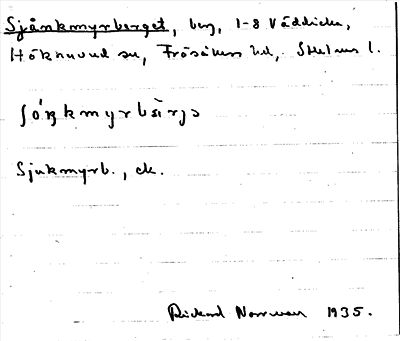 Sjånkmyrberget, berg, 1-8 Väddicka,
Höknuvud sn, Frösåkers hd, Sthlms l.
ʃóŋkmyrbærjə
Sjukmyrb., ek.
Rickard Norrman 1935.